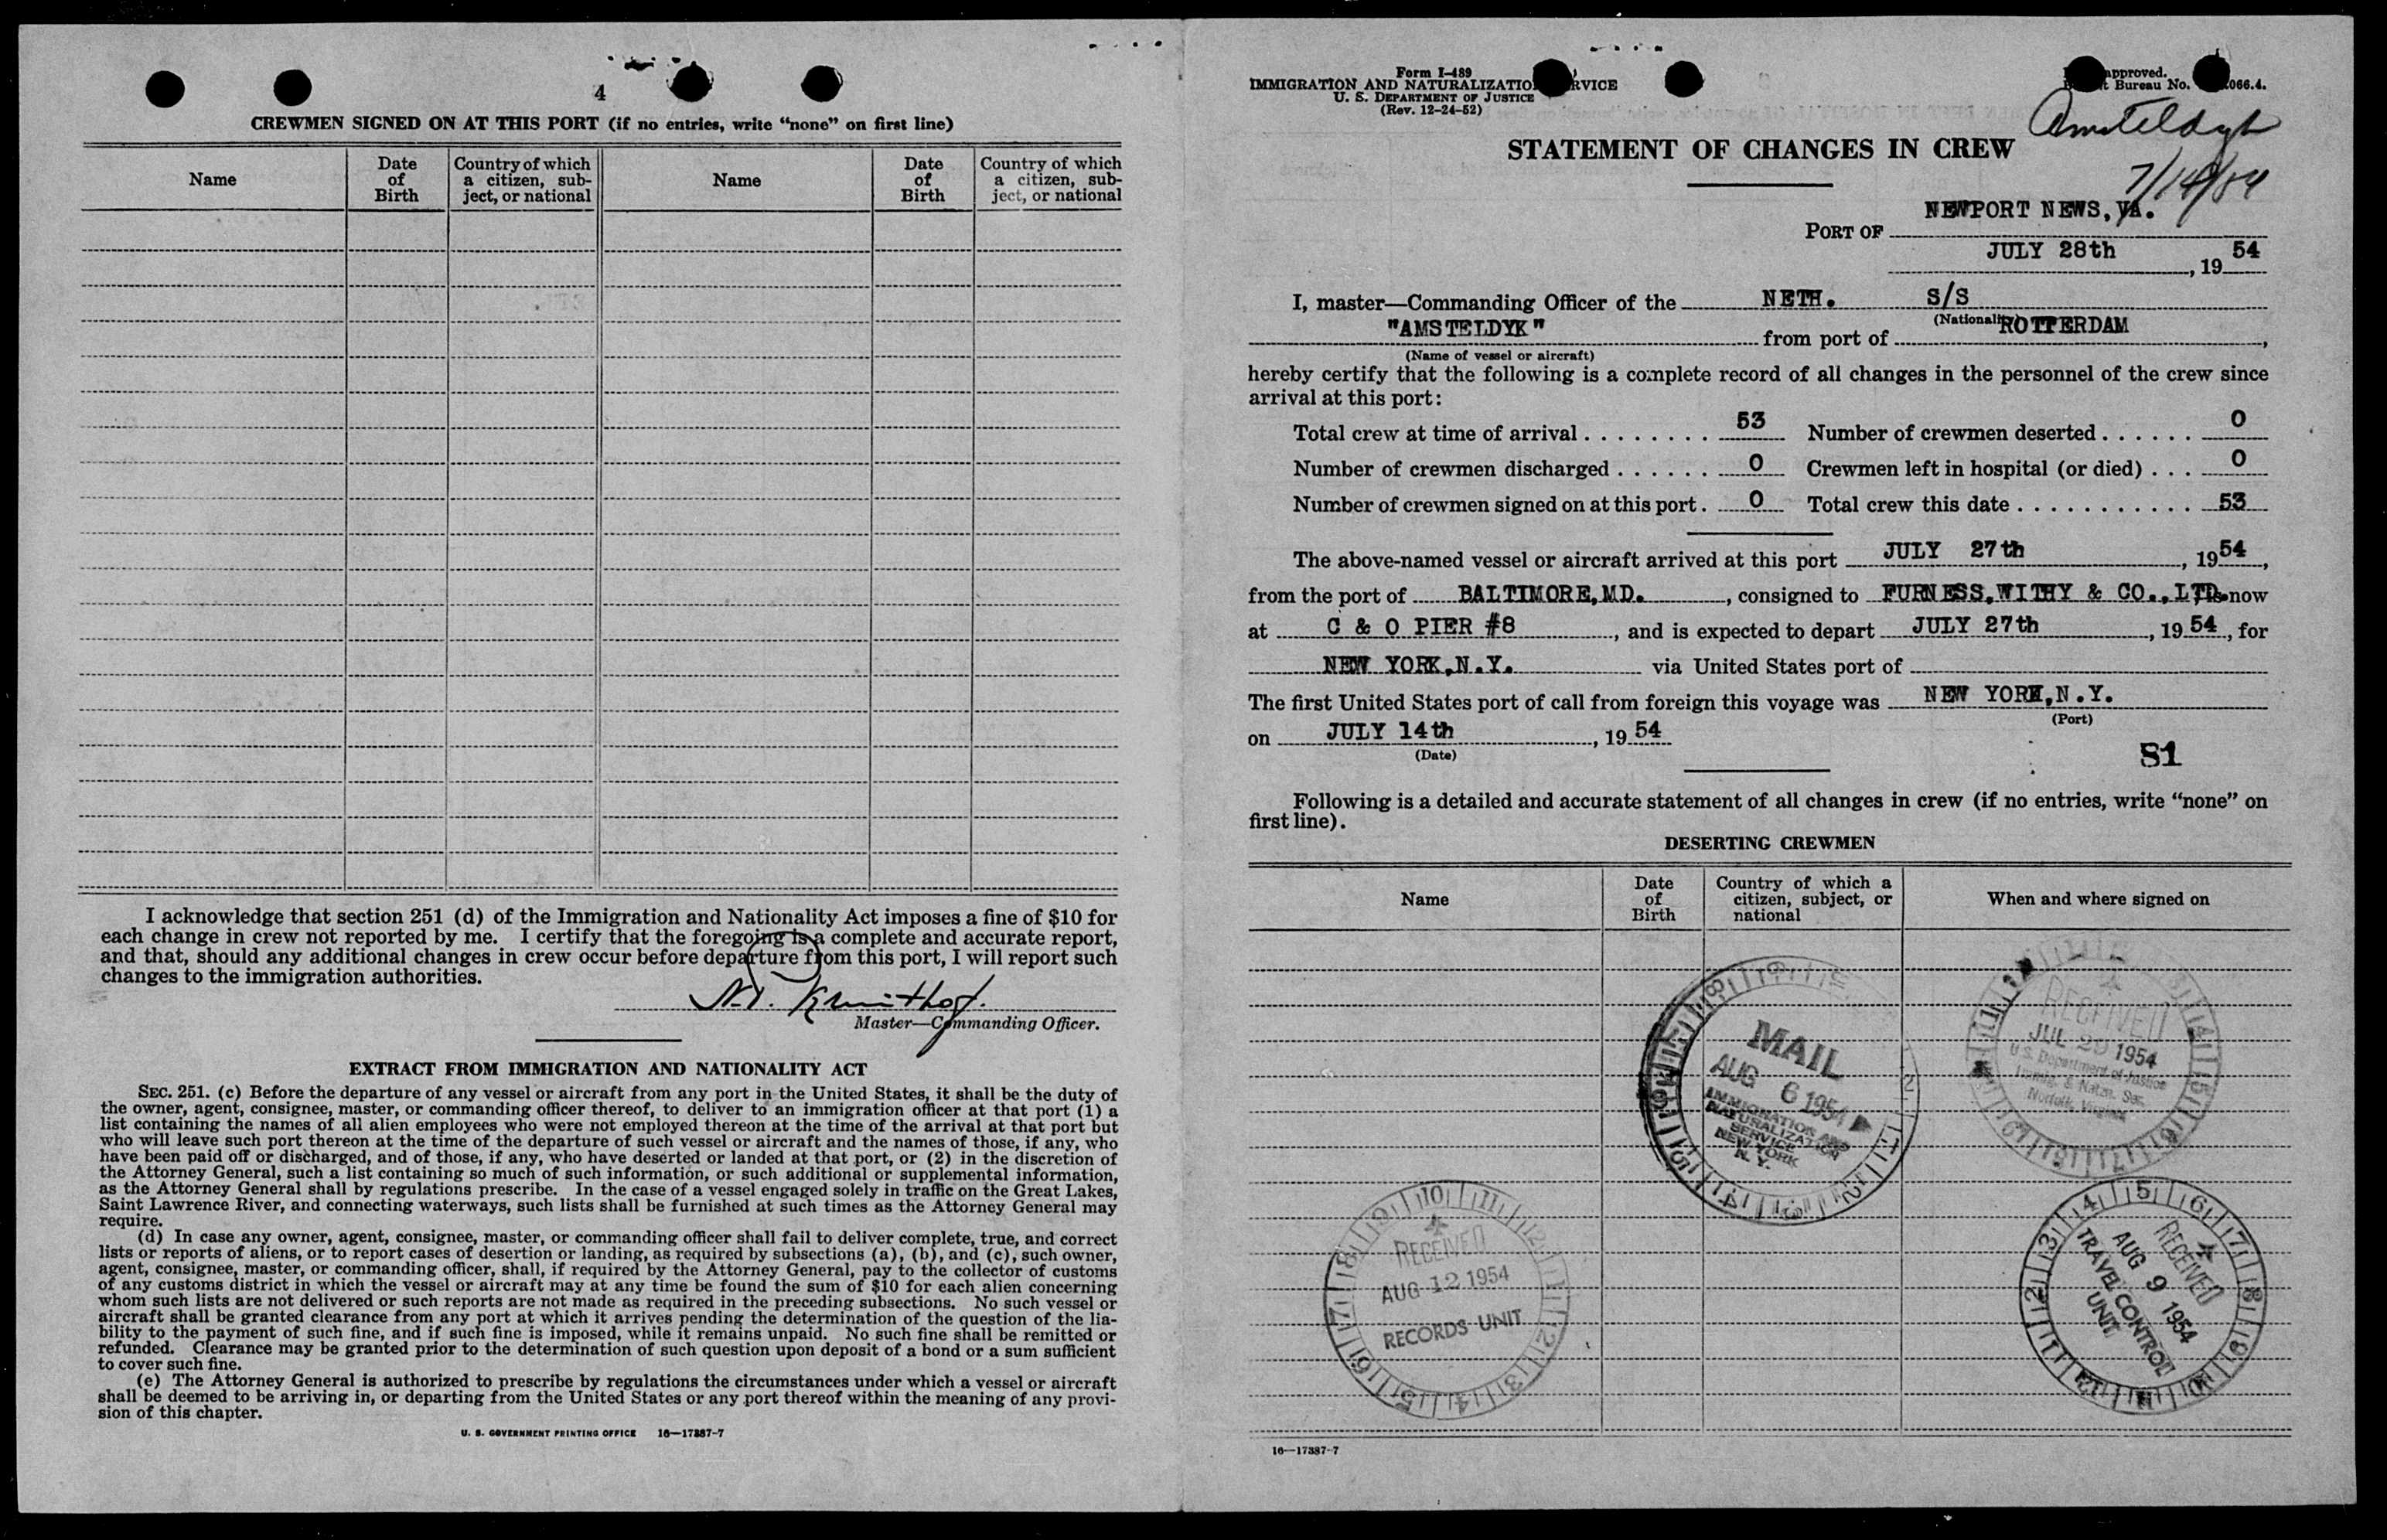 4
CREWMEN SIGNED ON AT THIS PORT (if no entries, write "none" on first line)
Name
Date of Birth
Country of which a citizen, sub-
ject, or national
Name
Date of Birth
Country of which a citizen, sub-
ject, or national
I acknowledge that section 251 (d) of the Immigration and Nationality Act imposes a fine of $10 for
each change in crew not reported by me. I certify that the foregoing is a complete and accurate report,
and that, should any additional changes in crew occur before departure from this port, I will report such
changes to the immigration authorities.
Master—Commanding Officer.
EXTRACT FROM IMMIGRATION AND NATIONALITY ACT
SEC. 251. (c) Before the departure of any vessel or aircraft from any port in the United States, it shall be the duty of
the owner, agent, consignee, master, or commanding officer thereof, to deliver to an immigration officer at that port (1) a
list containing the names of all alien employees who were not employed thereon at the time of the arrival at that port but
who will leave such port thereon at the time of the departure of such vessel or aircraft and the names of those, if any, who
have been paid off or discharged, and of those, if any, who have deserted or landed at that port, or (2) in the discretion of
the Attorney General, such a list containing so much of such information, or such additional or supplemental information,
as the Attorney General shall by regulations prescribe. In the case of a vessel engaged solely in traffic on the Great Lakes,
Saint Lawrence River, and connecting waterways, such lists shall be furnished at such times as the Attorney General may
require.
(d) In case any owner, agent, consignee, master, or commanding officer shall fail to deliver complete, true, and correct
lists or reports of aliens, or to report cases of desertion or landing, as required by subsections (a), (b), and (c), such owner,
agent, consignee, master, or commanding officer, shall, if required by the Attorney General, pay to the collector of customs
of any customs district in which the vessel or aircraft may at any time be found the sum of $10 for each alien concerning
whom such lists are not delivered or such reports are not made as required in the preceding subsections. No such vessel or
aircraft shall be granted clearance from any port at which it arrives pending the determination of the question of the lia-
bility to the payment of such fine, and if such fine is imposed, while it remains unpaid. No such fine shall be remitted or
refunded. Clearance may be granted prior to the determination of such question upon deposit of a bond or a sum sufficient
to cover such fine.
(e) The Attorney General is authorized to prescribe by regulations the circumstances under which a vessel or aircraft
shall be deemed to be arriving in, or departing from the United States or any port thereof within the meaning of any provi-
sion of this chapter.
U. S. GOVERNMENT PRINTING OFFICE 16—17387-7
Form I-489
IMMIGRATION AND NATURALIZATION SERVICE
U. S. DEPARTMENT OF JUSTICE
(Rev. 12-24-52)
approved.
Bureau No. 066.4.
Amsteldyk
7/14/54
STATEMENT OF CHANGES IN CREW
PORT OF NEWPORT NEWS, VA.
JULY 28th, 19 54
I, master—Commanding Officer of the NETH. S/S
(Nationality)
"AMSTELDYK" from port of ROTTERDAM,
(Name of vessel or aircraft)
hereby certify that the following is a complete record of all changes in the personnel of the crew since
arrival at this port:
Total crew at time of arrival . . . . . . . . 53 Number of crewmen deserted . . . . . . 0
Number of crewmen discharged . . . . . . 0 Crewmen left in hospital (or died) . . . 0
Number of crewmen signed on at this port . 0 Total crew this date . . . . . . . . . . . . 53
The above-named vessel or aircraft arrived at this port JULY 27th, 1954,
from the port of BALTIMORE,MD., consigned to FURNESS,WITHY & CO.,LTD. is now
at C & O PIER #8, and is expected to depart JULY 27th, 19 54, for
NEW YORK,N.Y. via United States port of
The first United States port of call from foreign this voyage was NEW YORK,N.Y.
(Port)
on JULY 14th, 19 54
(Date)
81
Following is a detailed and accurate statement of all changes in crew (if no entries, write "none" on
first line).
DESERTING CREWMEN
Name
Date of Birth
Country of which a citizen, subject, or national
When and where signed on
MAIL
AUG 6 1954
IMMIGRATION AND
NATURALIZATION
SERVICE
NEW YORK
N. Y.
RECEIVED
JUL 29 1954
U.S. Department of Justice
Immig. & Natzn. Ser.
Norfolk, Virginia
RECEIVED
AUG 12 1954
RECORDS UNIT
RECEIVED
AUG 9 1954
TRAVEL CONTROL
UNIT
16—17387-7